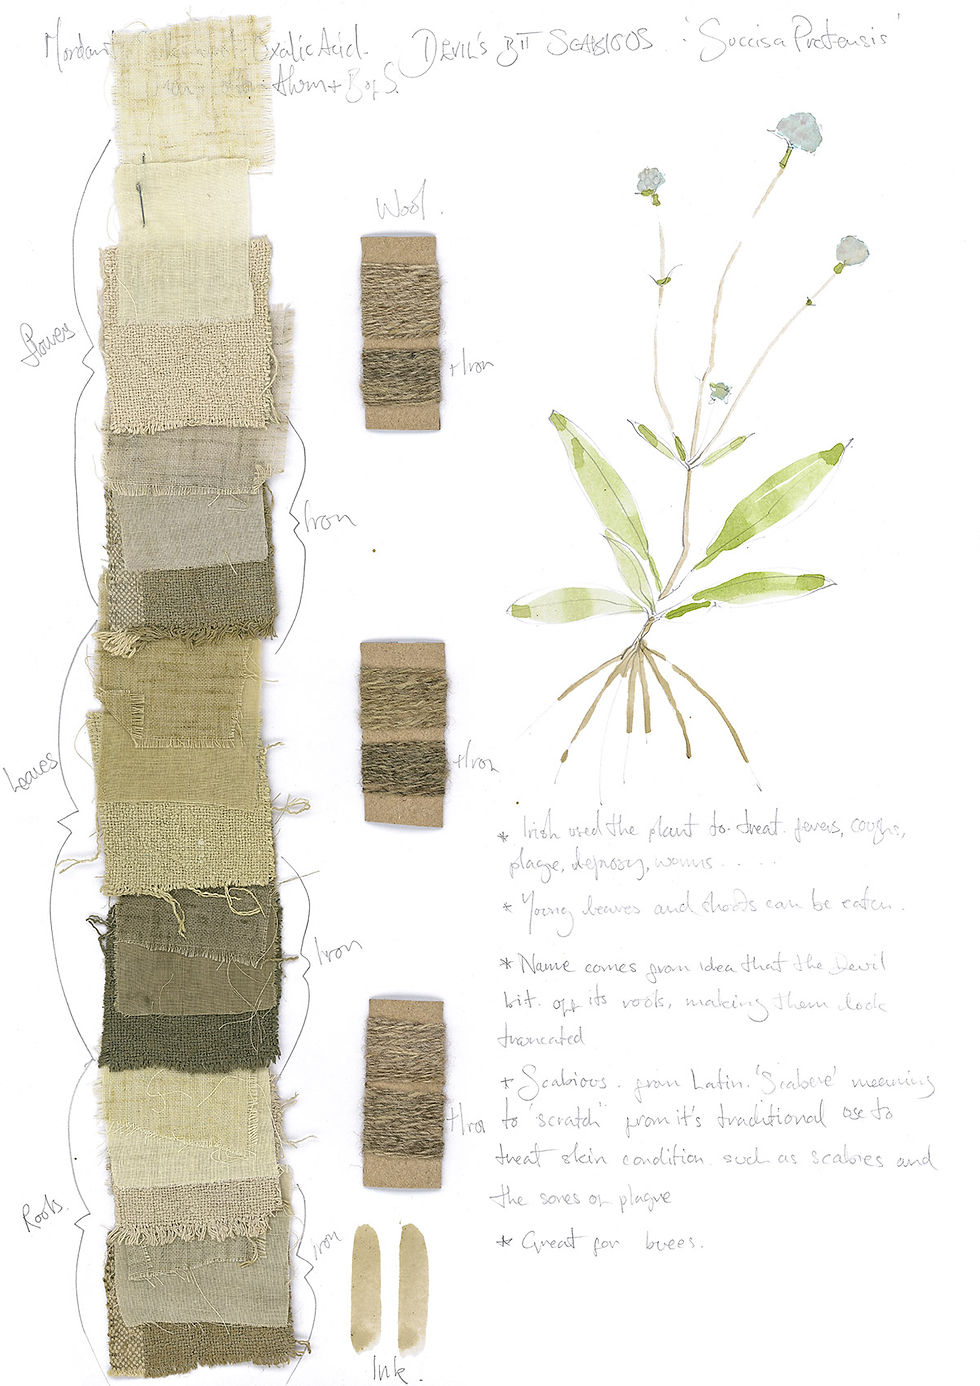 Mordant Oxalic Acid
DEVIL'S BIT SCABIOUS. 'Succisa Pratensis'
Alum + B of S.
Wool.
Flowers
+ Iron
Iron
Leaves
+ Iron
Iron
Roots.
+ Iron
Iron
Ink.
* Irish used the plant to treat fevers, coughs,
plague, leprosy, worms . . . . .
* Young leaves and shoots can be eaten.
* Name comes from idea that the Devil
bit off its roots, making them look
truncated
* Scabious. from Latin. 'Scabere' meaning
to 'scratch" from it's traditional use to
treat skin condition such as scabies and
the sores of plague
* Great for bees.